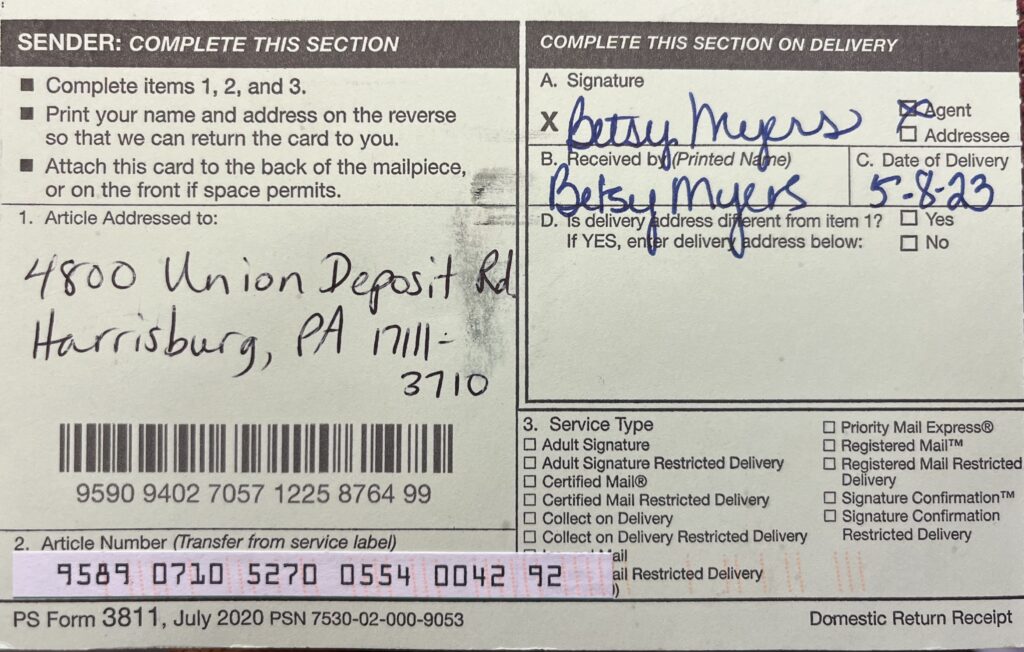 SENDER: COMPLETE THIS SECTION
■ Complete items 1, 2, and 3.
■ Print your name and address on the reverse
so that we can return the card to you.
■ Attach this card to the back of the mailpiece,
or on the front if space permits.
1. Article Addressed to:
4800 Union Deposit Rd
Harrisburg, PA 17111-
3710
9590 9402 7057 1225 8764 99
2. Article Number (Transfer from service label)
9589 0710 5270 0554 0042 92
COMPLETE THIS SECTION ON DELIVERY
A. Signature
X Betsy Myers
☒ Agent
☐ Addressee
B. Received by (Printed Name)
Betsy Myers
C. Date of Delivery
5-8-23
D. Is delivery address different from item 1? ☐ Yes
If YES, enter delivery address below: ☐ No
3. Service Type
☐ Adult Signature
☐ Adult Signature Restricted Delivery
☐ Certified Mail®
☐ Certified Mail Restricted Delivery
☐ Collect on Delivery
☐ Collect on Delivery Restricted Delivery
Mail
ail Restricted Delivery
)
☐ Priority Mail Express®
☐ Registered Mail™
☐ Registered Mail Restricted
Delivery
☐ Signature Confirmation™
☐ Signature Confirmation
Restricted Delivery
PS Form 3811, July 2020 PSN 7530-02-000-9053
Domestic Return Receipt